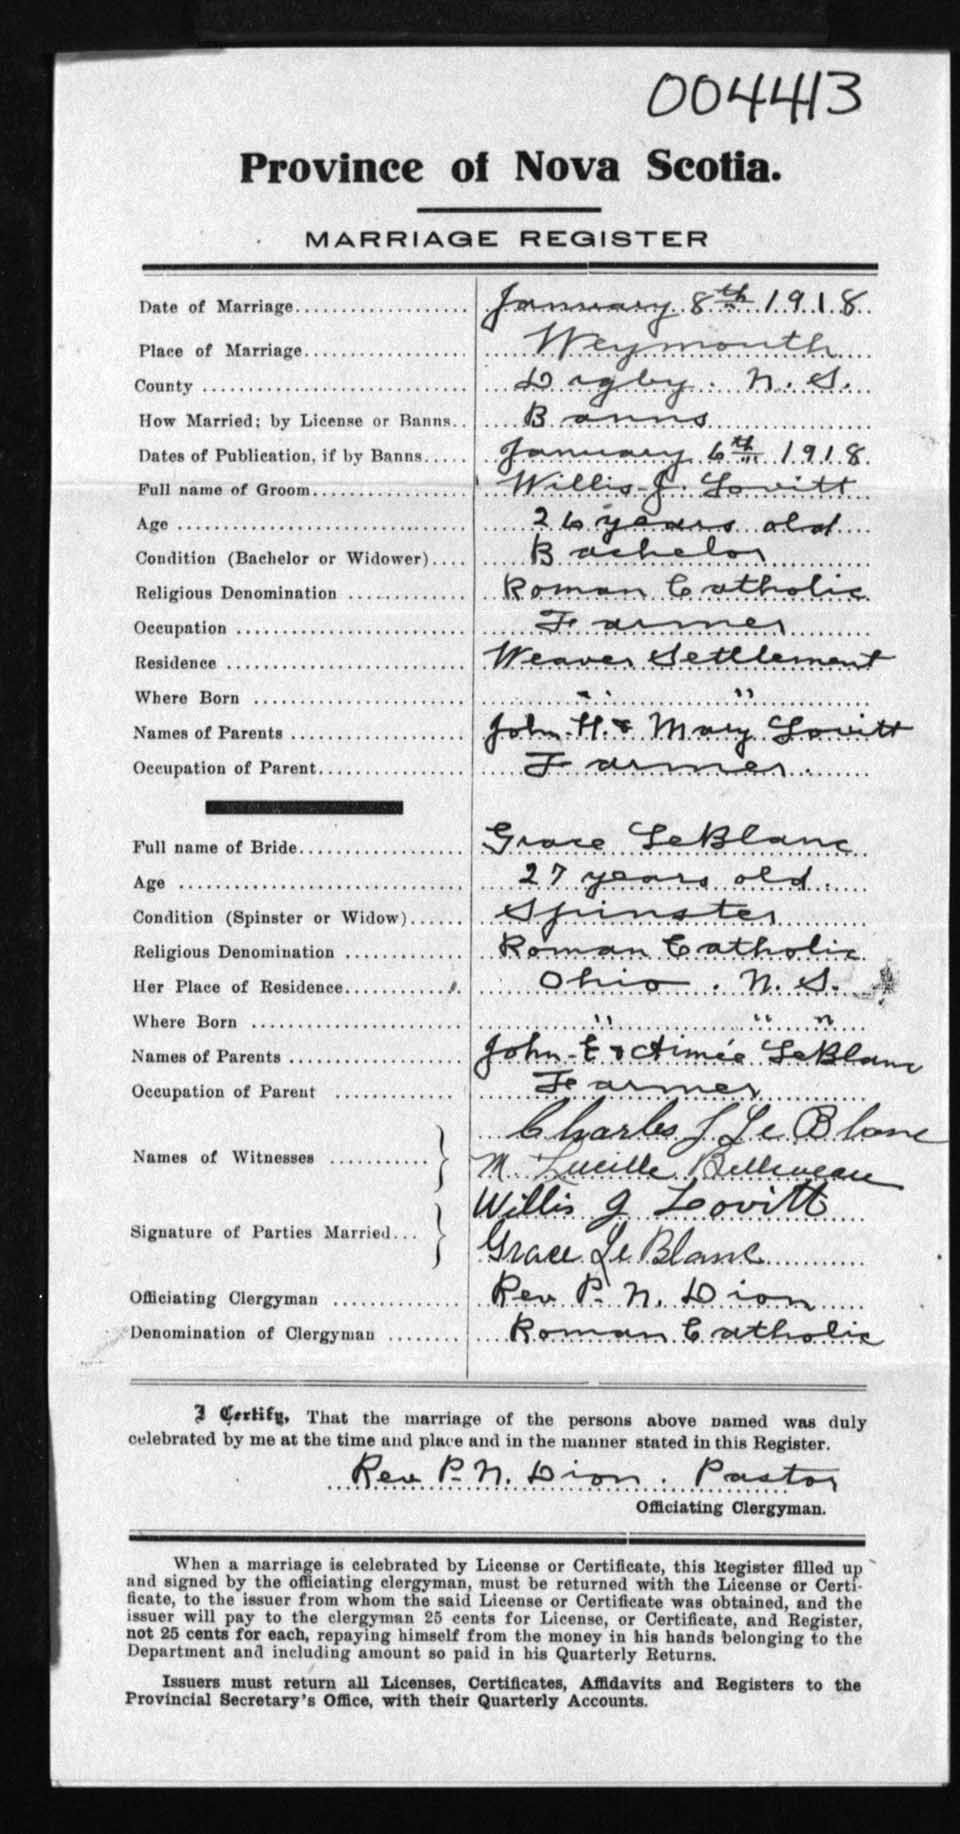 004413
Province of Nova Scotia.
MARRIAGE REGISTER
Date of Marriage.................... January 8th 1918
Place of Marriage................... Weymouth
County ............................ Digby. N. S.
How Married; by License or Banns.. Banns
Dates of Publication, if by Banns..... January 6th 1918.
Full name of Groom.................. Willis J. Lovitt
Age ............................... 26 years old
Condition (Bachelor or Widower).... Bachelor
Religious Denomination ............. Roman Catholic
Occupation ........................ Farmer
Residence ......................... Weaver Settlement
Where Born ....................... " "
Names of Parents ................... John H. & Mary Lovitt
Occupation of Parent................ Farmer.
Full name of Bride.................. Grace LeBlanc
Age .............................. 27 years old.
Condition (Spinster or Widow)...... Spinster
Religious Denomination ............. Roman Catholic
Her Place of Residence.............. Ohio. N. S.
Where Born ....................... " " "
Names of Parents ................... John E & Aimée LeBlanc
Occupation of Parent .............. Farmer
Names of Witnesses ........... } Charles J Le Blanc
M. Lucille Belliveau
Signature of Parties Married... } Willis J Lovitt
Grace Le Blanc
Officiating Clergyman ............. Rev P. N. Dion
Denomination of Clergyman ........ Roman Catholic
I Certify, That the marriage of the persons above named was duly
celebrated by me at the time and place and in the manner stated in this Register.
Rev P. N. Dion. Pastor
Officiating Clergyman.
When a marriage is celebrated by License or Certificate, this Register filled up
and signed by the officiating clergyman, must be returned with the License or Certi-
ficate, to the issuer from whom the said License or Certificate was obtained, and the
issuer will pay to the clergyman 25 cents for License, or Certificate, and Register,
not 25 cents for each, repaying himself from the money in his hands belonging to the
Department and including amount so paid in his Quarterly Returns.
Issuers must return all Licenses, Certificates, Affidavits and Registers to the
Provincial Secretary's Office, with their Quarterly Accounts.